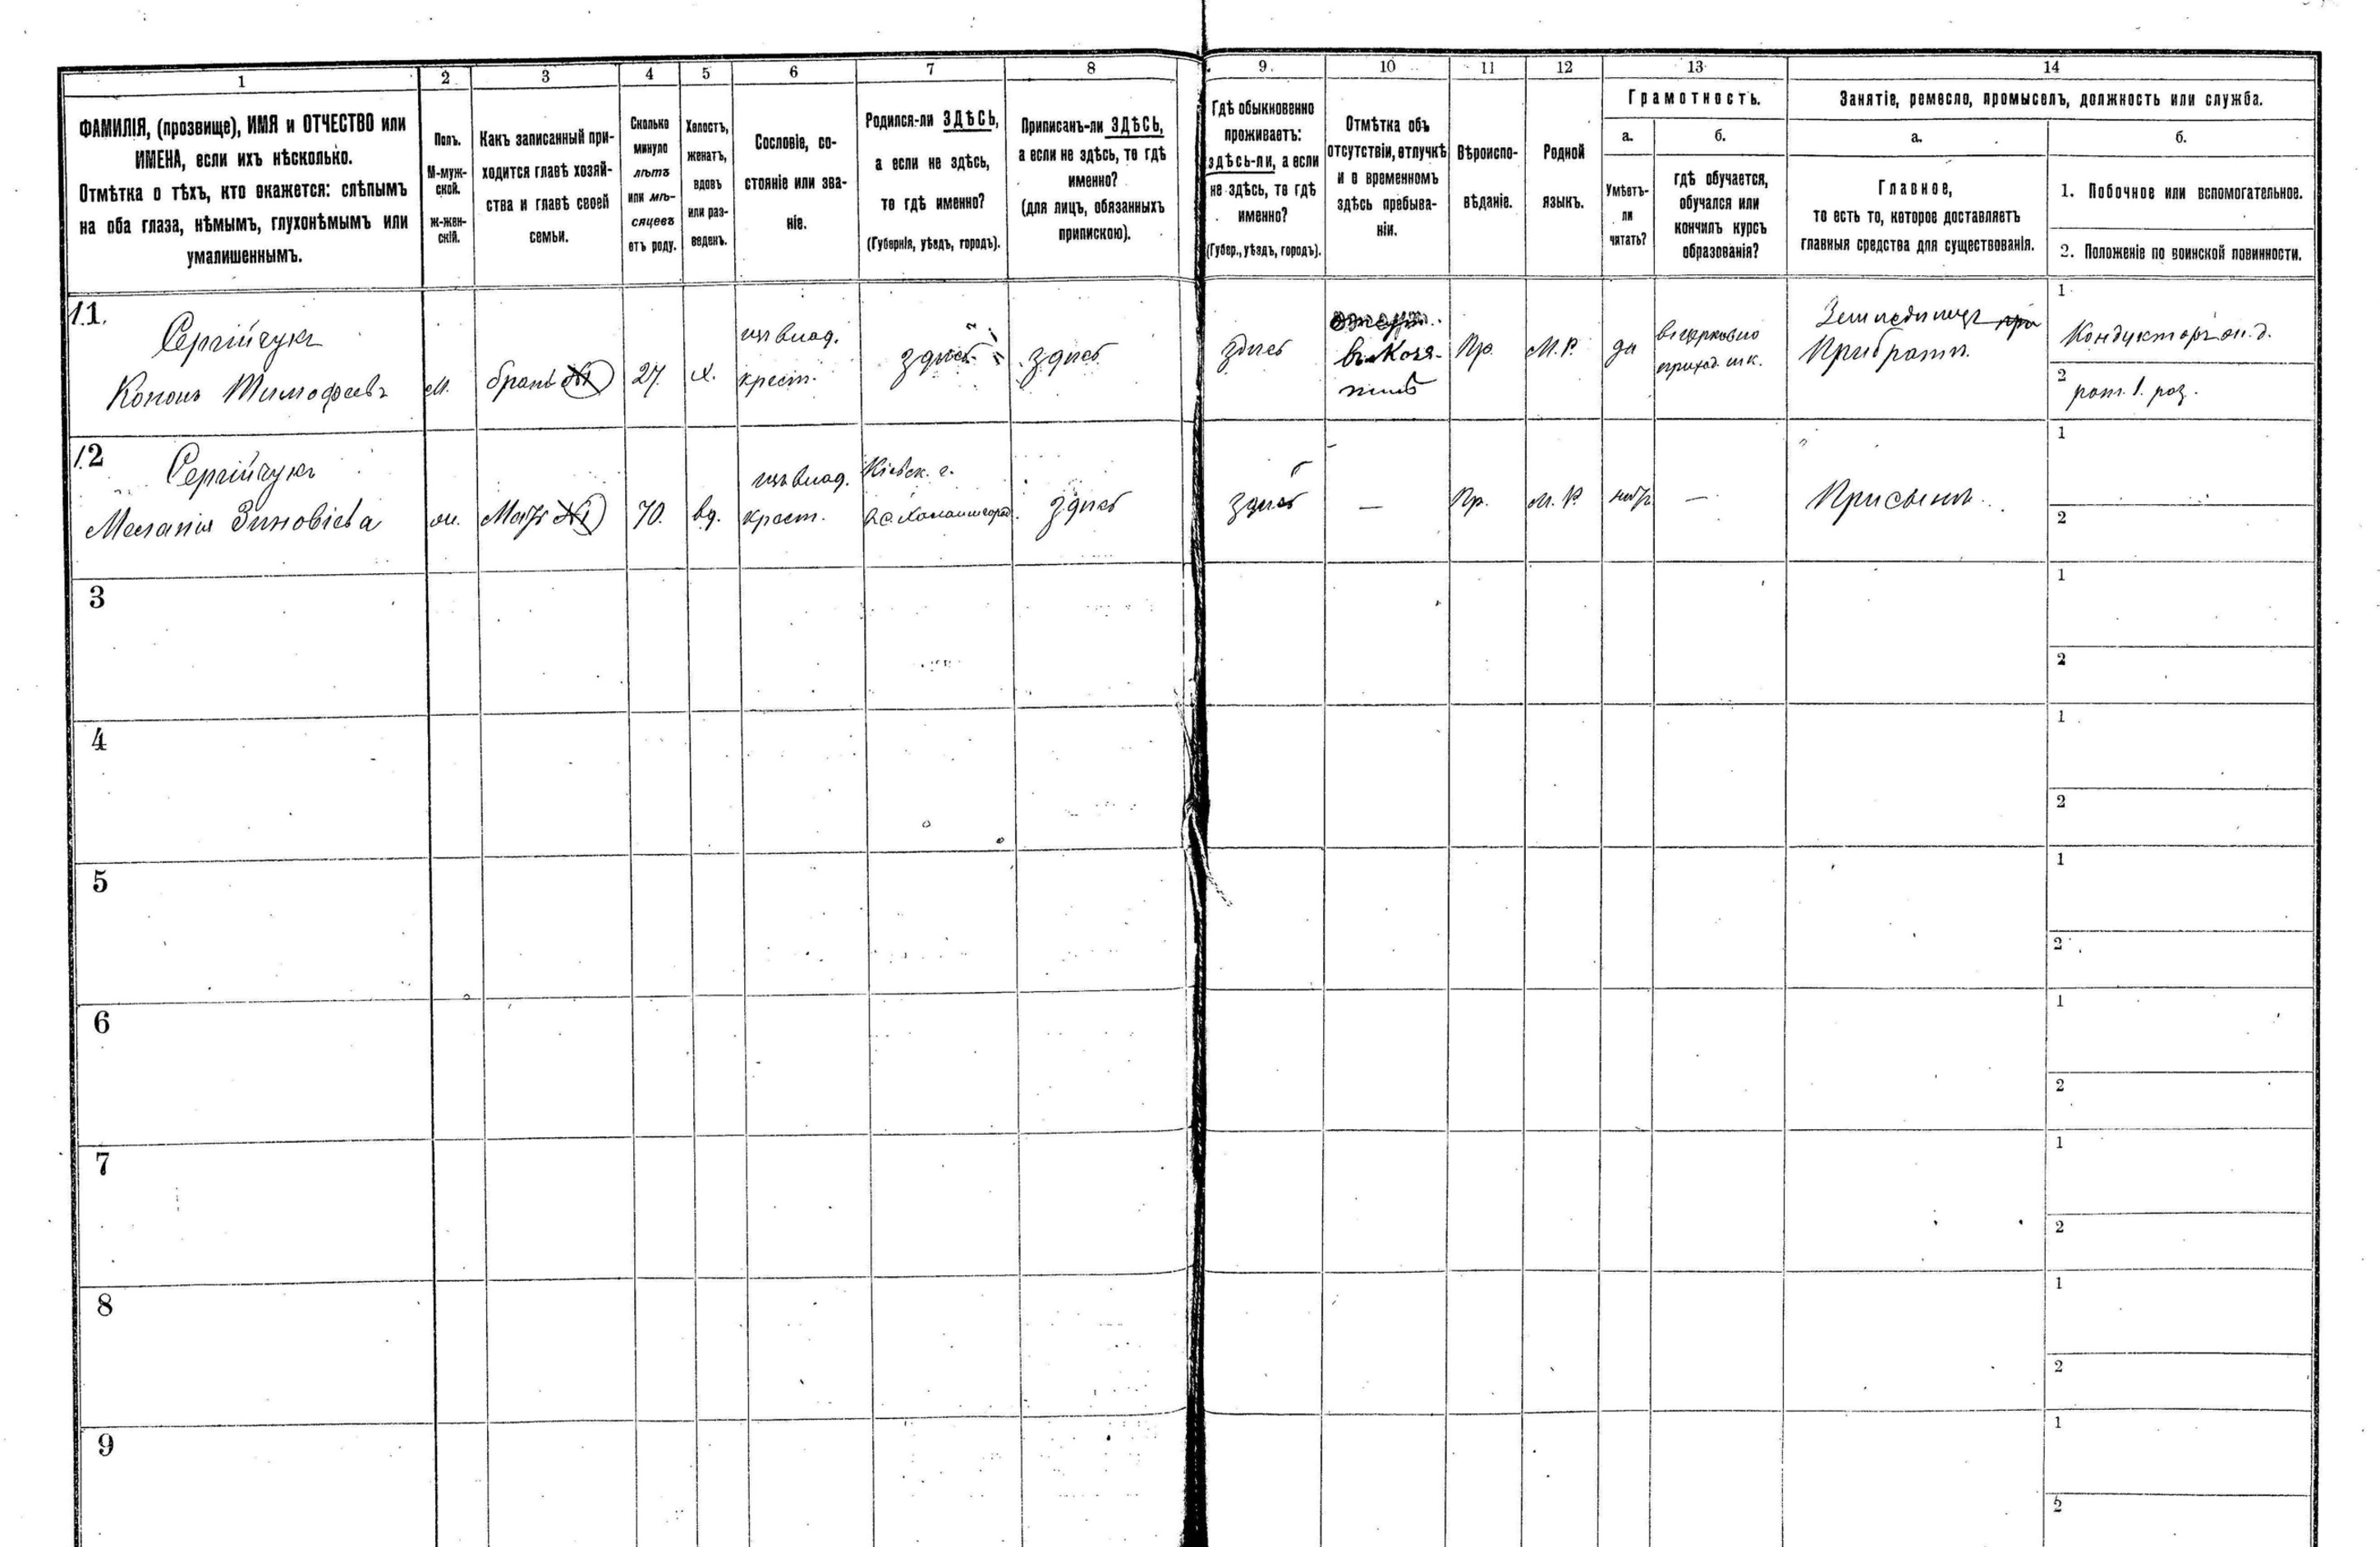 1
2
3
4
5
6
7
8
9.
10
11
12
13
14
ФАМИЛІЯ, (прозвище), ИМЯ и ОТЧЕСТВО или
ИМЕНА, если ихъ нѣсколько.
Отмѣтка о тѣхъ, кто окажется: слѣпымъ
на оба глаза, нѣмымъ, глухонѣмымъ или
умалишеннымъ.
Полъ.
М-муж-
ской.
Ж-жен-
скій.
Какъ записанный при-
ходится главѣ хозяй-
ства и главѣ своей
семьи.
Сколько
минуло
лѣтъ
или мѣ-
сяцевъ
отъ роду.
Холостъ,
женатъ,
вдовъ
или раз-
веденъ.
Сословіе, со-
стояніе или зва-
ніе.
Родился-ли ЗДѢСЬ,
а если не здѣсь,
то гдѣ именно?
(Губернія, уѣздъ, городъ).
Приписанъ-ли ЗДѢСЬ,
а если не здѣсь, то гдѣ
именно?
(для лицъ, обязанныхъ
припискою).
Гдѣ обыкновенно
проживаетъ:
здѣсь-ли, а если
не здѣсь, то гдѣ
именно?
(Губер., уѣздъ, городъ).
Отмѣтка объ
отсутствіи, отлучкѣ
и о временномъ
здѣсь пребыва-
ніи.
Вѣроиспо-
вѣданіе.
Родной
языкъ.
Грамотность.
а.
Умѣетъ-
ли
читать?
б.
гдѣ обучается,
обучался или
кончилъ курсъ
образованія?
Занятіе, ремесло, промыселъ, должность или служба.
а.
Главное,
то есть то, которое доставляетъ
главныя средства для существованія.
б.
1. Побочное или вспомогательное.
2. Положеніе по воинской повинности.
11.
Сергійчукъ
Кононъ Тимофеевъ
М.
братъ №1
27.
х.
изъ влад.
крест.
здѣсь
здѣсь
здѣсь
въ Козя-
тинѣ
Пр.
М. Р.
да
въ церковно
приход. шк.
Земледѣлецъ при
При братѣ.
1
Кондукторъ ж. д.
2
рат. 1. раз.
12
Сергійчукъ
Меланія Зиновіева
ж.
Мать №1
70.
вд.
изъ влад.
крест.
Кіевск. г.
здѣсь
здѣсь
—
Пр.
М. Р.
нѣтъ
—
При сынѣ.
1
2
3
1
2
4
1
2
5
1
2
6
1
2
7
1
2
8
1
2
9
1
2